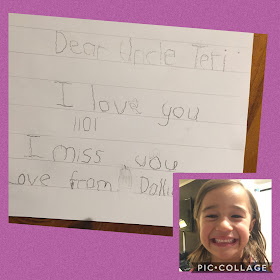 Dear Uncle Teri
I love you
1101
I miss you
Love from
PIC•COLLAGE